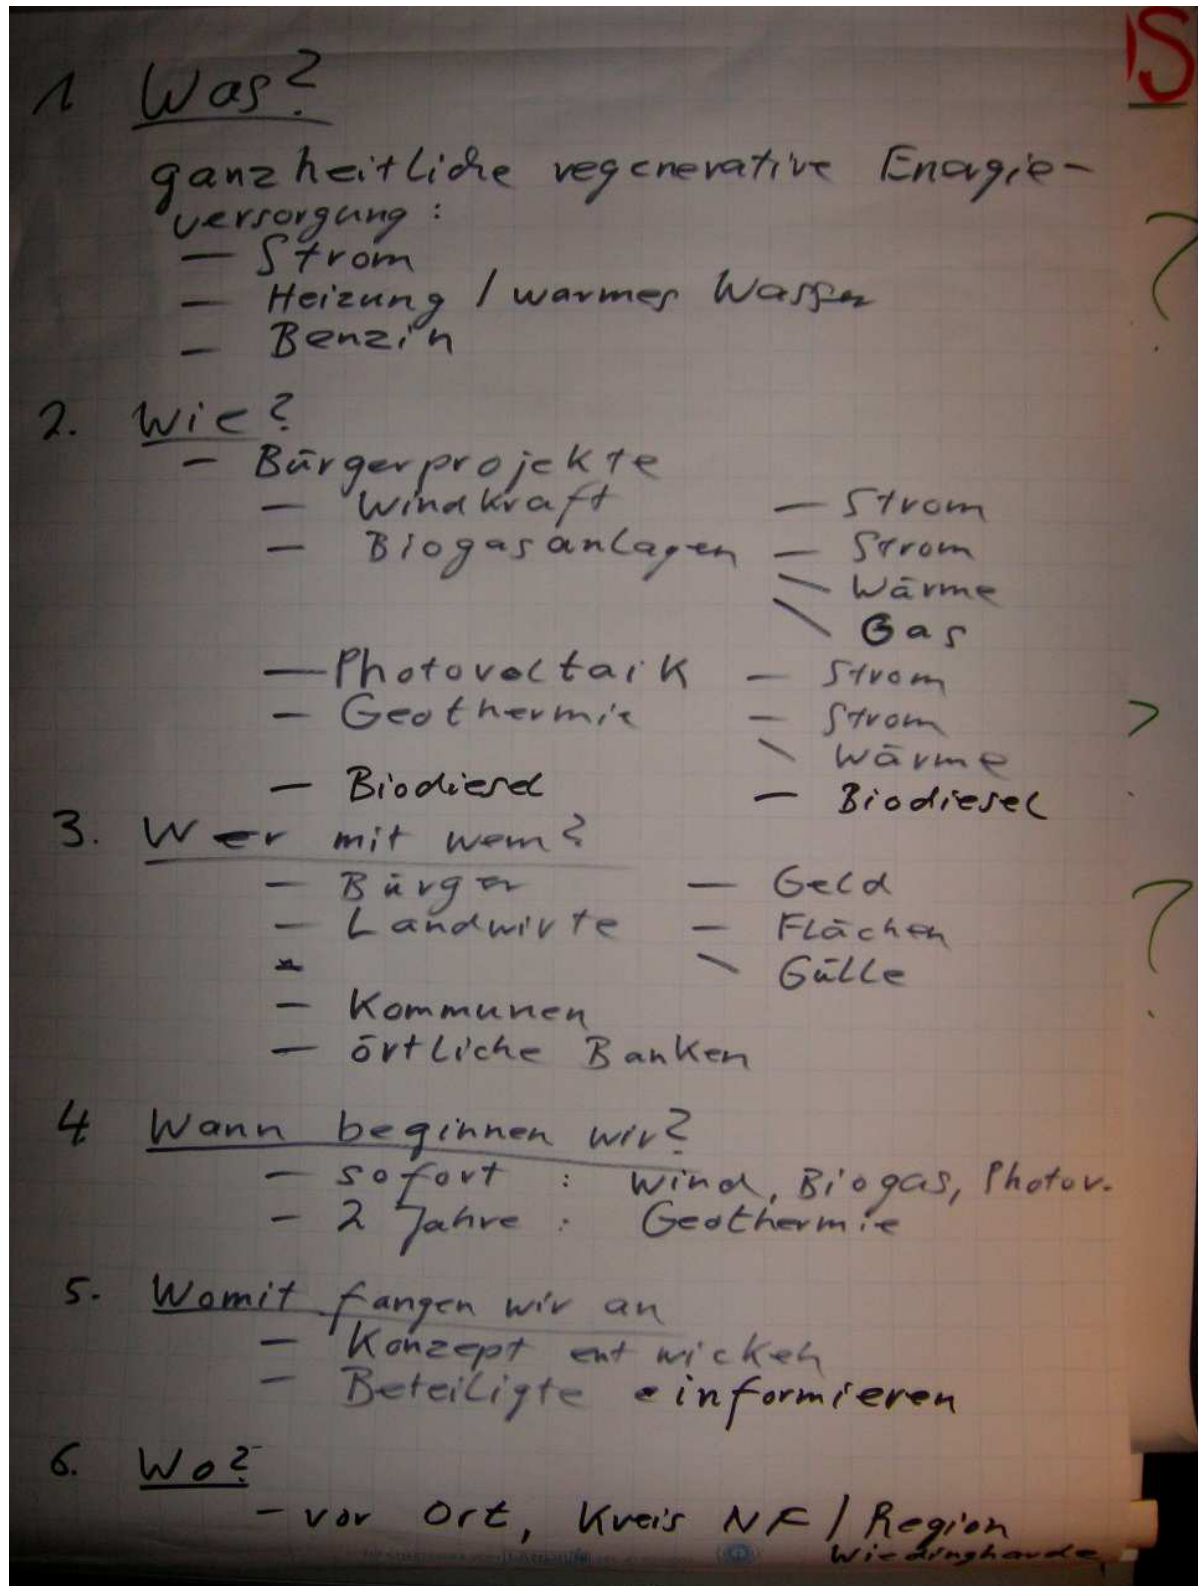 1 Was?
ganzheitliche regenerative Energie-
versorgung:
— Strom
— Heizung / warmes Wasser
— Benzin
2. Wie?
— Bürgerprojekte
— Windkraft — Strom
— Biogasanlagen — Strom
\ Wärme
\ Gas
— Photovoltaik — Strom
— Geothermie — Strom
\ Wärme
— Biodiesel — Biodiesel
3. Wer mit wem?
— Bürger — Geld
— Landwirte — Flächen
\ Gülle
— Kommunen
— örtliche Banken
4 Wann beginnen wir?
— sofort : Wind, Biogas, Photov.
— 2 Jahre : Geothermie
5. Womit fangen wir an
— Konzept entwickeln
— Beteiligte informieren
6. Wo?
— vor Ort, Kreis NF / Region
Wiedingharde